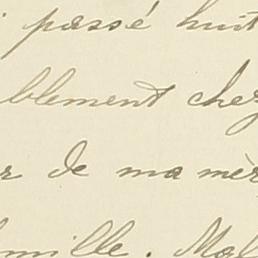 i passé huit
blement chez
r de ma mèr
mille. Mal